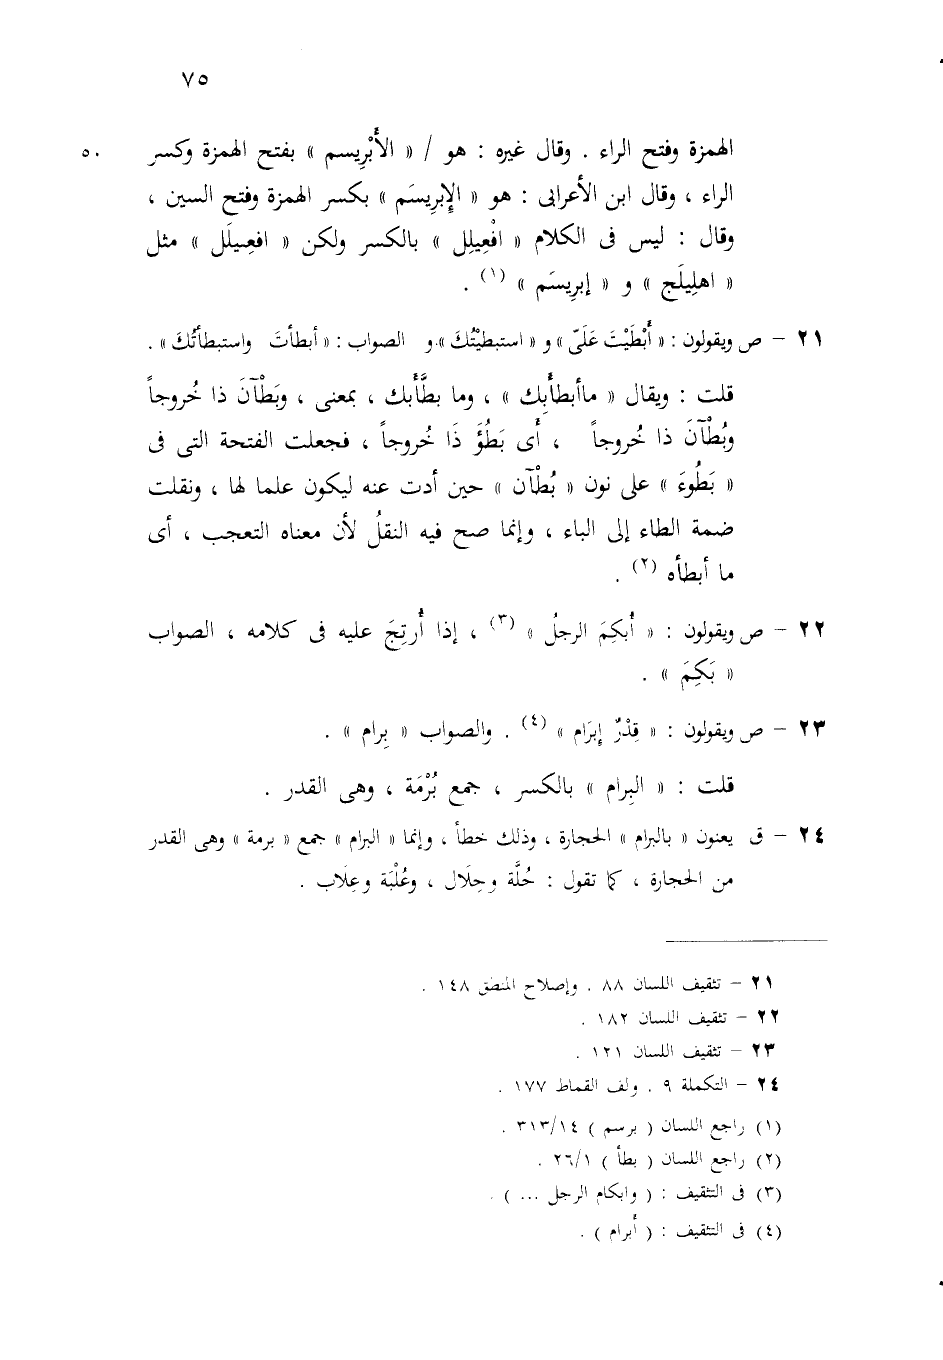 ٧٥
الهمزة وفتح الراء . وقال غيره : هو / « الأَبْرِيسم » بفتح الهمزة وكسر ٥٠
الراء ، وقال ابن الأعرابى : هو « الإِبرِيسَم » بكسر الهمزة وفتح السين ،
وقال : ليس فى الكلام « افْعِيلِل » بالكسر ولكن « افعِيلَل » مثل
« اهلِيلَج » و « إبرِيسَم » (١) .
٢١ – ص ويقولون : « أَبْطَيْتَ عَلَىّ » و « استبطيْتُكَ » و الصواب : « أبطأتَ واستبطأتُكَ » .
قلت : ويقال « ماأبطأَبِك » ، وما بطَّأَبك ، بمعنى ، وبَطْآنَ ذا خُروجاً
وبُطْآنَ ذا خُروجاً ، أَى بَطُؤَ ذَا خُروجاً ، فجعلت الفتحة التى فى
« بَطُوءَ » على نون « بُطْآن » حين أدت عنه ليكون علما لها ، ونقلت
ضمة الطاء إلى الباء ، وإنما صح فيه النقلُ لأن معناه التعجب ، أى
ما أبطأه (٢) .
٢٢ – ص ويقولون : « أُبكِمَ الرجلُ » (٣) ، إذا أُرتِجَ عليه فى كلامه ، الصواب
« بَكِمَ » .
٢٣ – ص ويقولون : « قِدْرٌ إبرَام » (٤) . والصواب « بِرام » .
قلت : « البِرام » بالكسر ، جمع بُرْمَة ، وهى القدر .
٢٤ – ق يعنون « بالبرام » الحجارة ، وذلك خطأ ، وإنما « البرام » جمع « برمة » وهى القدر
من الحجارة ، كما تقول : حُلَّة وحِلَال ، وعُلْبَة وعِلَاب .
٢١ – تثقيف اللسان ٨٨ . وإصلاح المنطق ١٤٨ .
٢٢ – تثقيف اللسان ١٨٢ .
٢٣ – تثقيف اللسان ١٢١ .
٢٤ – التكملة ٩ . ولف القماط ١٧٧ .
(١) راجع اللسان ( برسم ) ٣١٣/١٤ .
(٢) راجع اللسان ( بطأ ) ٢٦/١ .
(٣) فى التثقيف : ( وابكام الرجل ... ) .
(٤) فى التثقيف : ( أبرام ) .